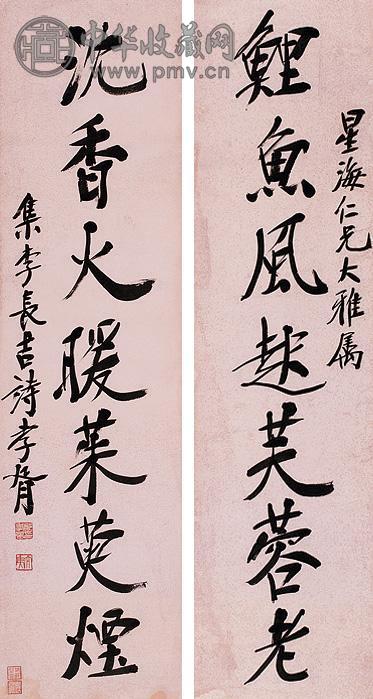 中华收藏网
www.pmv.cn
星海仁兄大雅属
鯉魚風起芙蓉老
沈香火暖茱萸煙
集李長吉詩孝胥